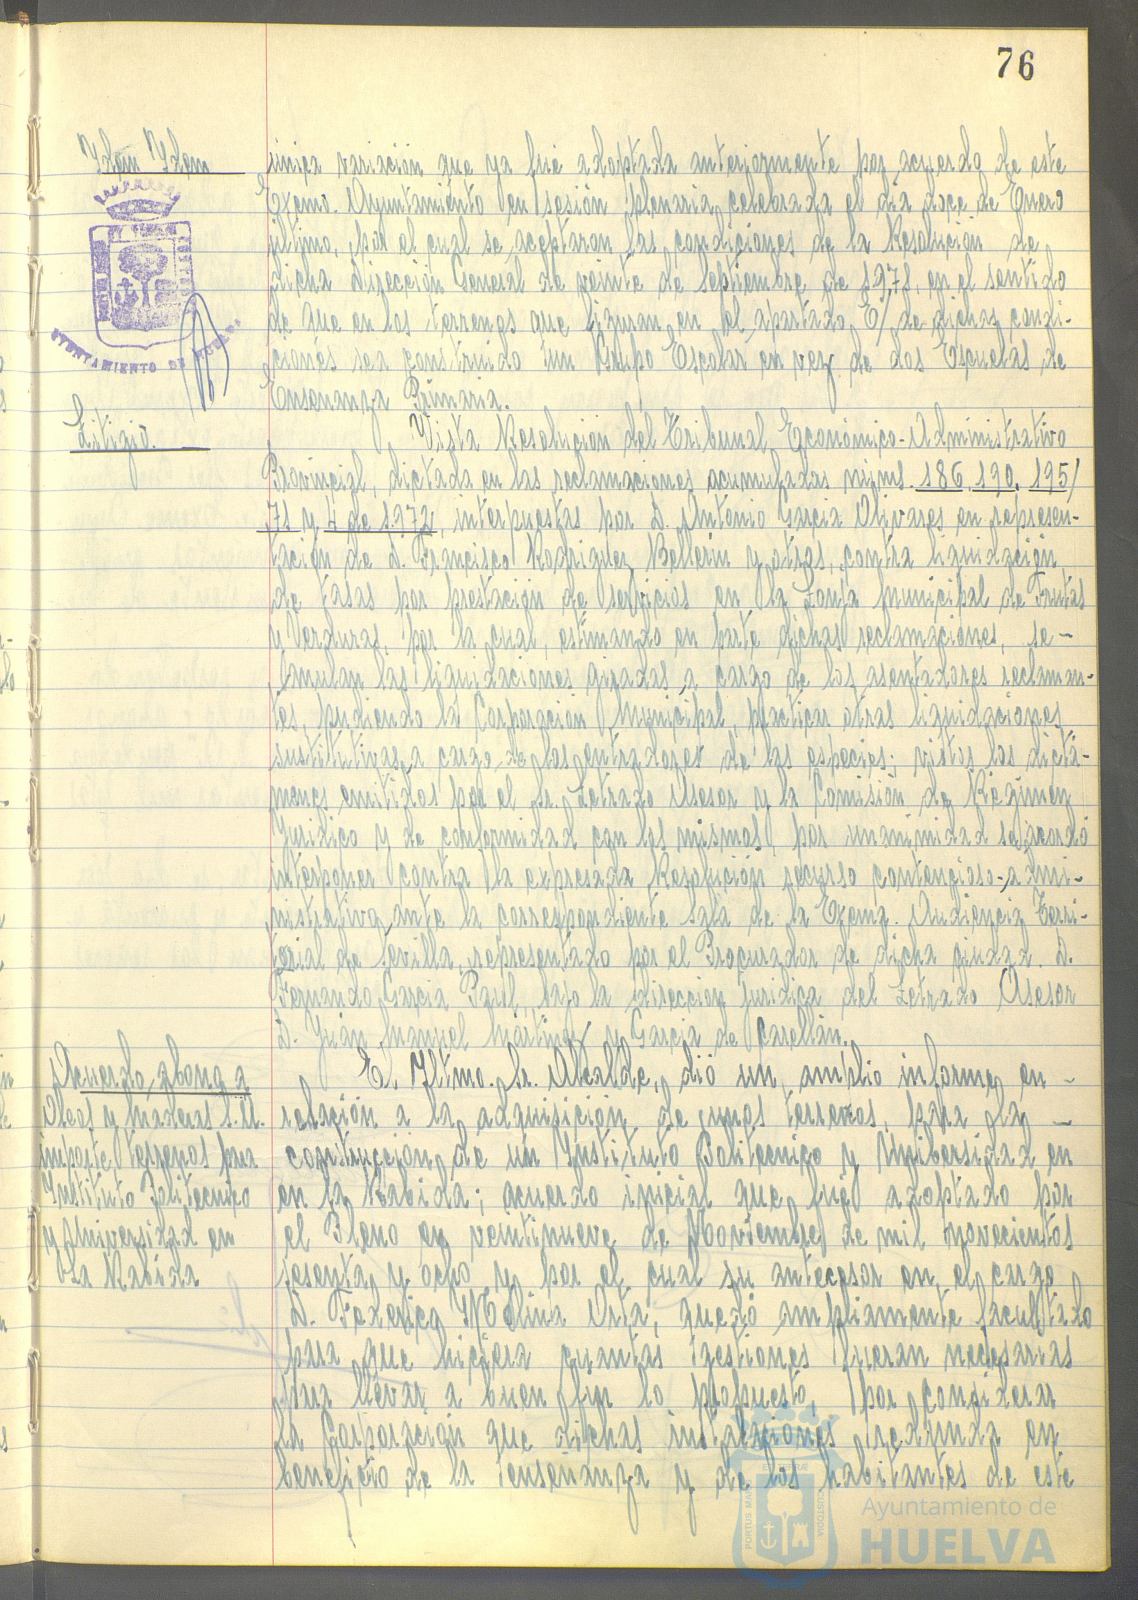 76
Idem Idem
única variación que ya fué adoptada anteriormente por acuerdo de este
Excmo. Ayuntamiento en sesión plenaria celebrada el día doce de Enero
último, por el cual se aceptaron las condiciones de la Resolución de
dicha Dirección General de veinte de Septiembre de 1.971, en el sentido
de que en los terrenos que figuran en el apartado E/ de dichas condi-
ciones sea construido un Grupo Escolar en vez de dos Escuelas de
Enseñanza Primaria.
AYUNTAMIENTO DE HUELVA
Litigio.
Vista Resolución del Tribunal Económico-Administrativo
Provincial, dictada en las reclamaciones acumuladas núms. 186, 190, 195/
71 y 4 de 1.972, interpuestas por D. Antonio García Olivares en represen-
tación de D. Francisco Rodríguez Bellerín y otras, contra liquidación
de tasas por prestación de servicios en la Lonja Municipal de Frutas
y Verduras, por la cual, estimando en parte dichas reclamaciones, se-
anulan las liquidaciones giradas a cargo de los asentadores reclaman-
tes, pudiendo la Corporación Municipal, practicar otras liquidaciones
sustitutivas a cargo de los entradores de las especies; vistos los dictá-
menes emitidos por el Sr. Letrado Asesor y la Comisión de Régimen
Jurídico y de conformidad con los mismos, por unanimidad se acordó
interponer contra la expresada Resolución recurso contencioso-admi-
nistrativo ante la correspondiente Sala de la Excma. Audiencia Terri-
torial de Sevilla, representado por el Procurador de dicha ciudad. D.
Fernando García Paúl, bajo la dirección jurídica del Letrado Asesor
D. Juan Manuel Martínez y García de
Acuerdo abono a
Oleos y Maderas S.A.
importe terrenos para
Instituto Politecnico
y Universidad en
La Rabida
El Iltmo. Sr. Alcalde, dió un amplio informe en -
relación a la adquisición de unos terrenos, para la -
contrucción de un Instituto Politecnico y Universidad en
en la Rabida; acuerdo inicial que fué adoptado por
el Pleno en veintinueve de Noviembre de mil novecientos
sesenta y ocho y por el cual su antecesor en el cargo
D. Federico Molina Orta, quedó ampliamente facultado
para que hiciera cuantas gestiones fueran necesarias
para llevar a buen fin lo propuesto, por considerar
la Corporación que dichas instalaciones redunda en
beneficio de la enseñanza y de los habitantes de este
PORTUS MARIS
ET TERRAE
CUSTODIA
Ayuntamiento de
HUELVA